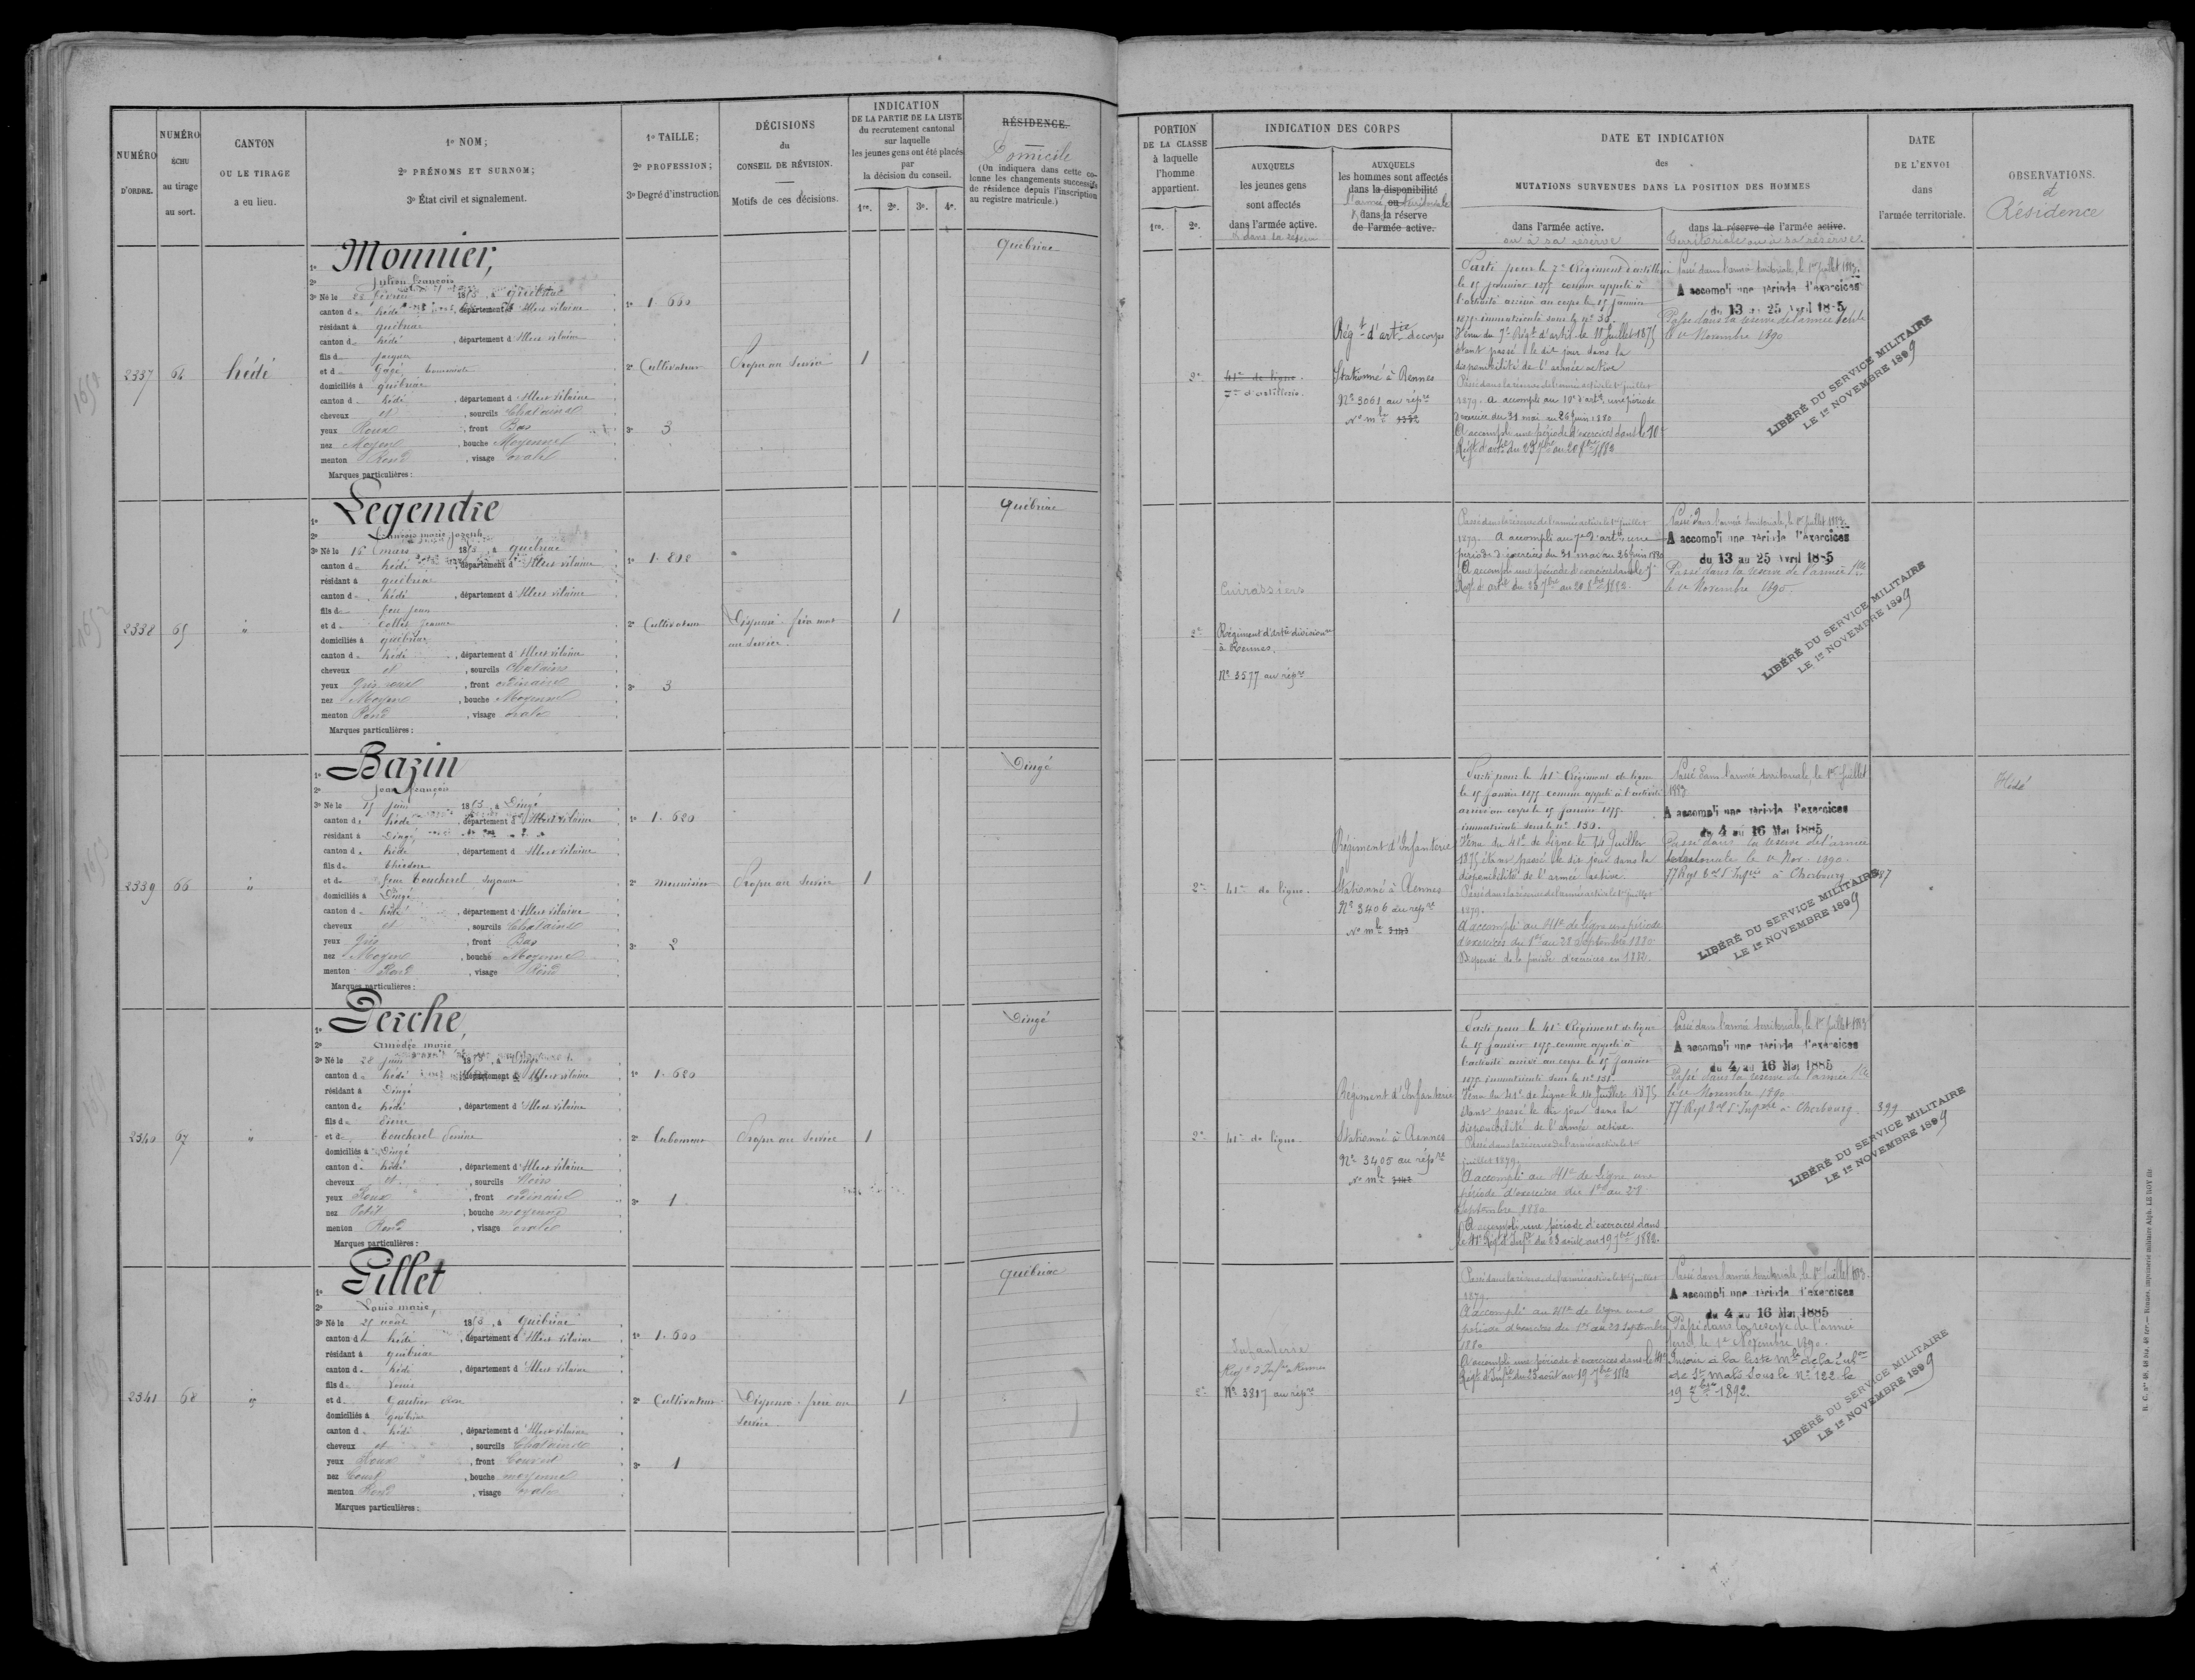 NUMÉRO D'ORDRE.
NUMÉRO ÉCHU au tirage au sort.
CANTON OU LE TIRAGE a eu lieu.
1º NOM;
2º PRÉNOMS ET SURNOM;
3º État civil et signalement.
1º TAILLE;
2º PROFESSION;
3º Degré d'instruction.
DÉCISIONS
du
CONSEIL DE RÉVISION.
Motifs de ces décisions.
INDICATION
DE LA PARTIE DE LA LISTE
du recrutement cantonal
sur laquelle
les jeunes gens ont été placés
par
la décision du conseil.
1re. 2e. 3e. 4e.
RÉSIDENCE.
Domicile
(On indiquera dans cette colonne les changements successifs de résidence depuis l'inscription au registre matricule.)
PORTION
DE LA CLASSE
à laquelle
l'homme
appartient.
1re. 2e.
INDICATION DES CORPS
AUXQUELS
les jeunes gens
sont affectés
dans l'armée active.
AUXQUELS
les hommes sont affectés
dans la disponibilité
ou
dans la réserve
de l'armée active.
DATE ET INDICATION
des
MUTATIONS SURVENUES DANS LA POSITION DES HOMMES
dans l'armée active.
ou à sa réserve
dans la réserve de l'armée active.
Territoriale ou à sa réserve.
DATE
DE L'ENVOI
dans
l'armée territoriale.
OBSERVATIONS.
et
Résidence
2337
64
hédé
1º Monnier,
2º Julien François
3º Né le 1853, à Québriac
canton de hédé, département d'Ille et vilaine
résidant à québriac
canton de hédé, département d'Ille et vilaine
fils de Jacques
domiciliés à québriac
canton de hédé, département d'Ille et vilaine
cheveux et, sourcils Chatains
yeux Roux, front Bas
nez Moyen, bouche Moyenne
menton Rond, visage ovale
Marques particulières:
1º 1.600
2º Cultivateur
3º 3
Propre au Service
1
Québriac
2e
41e de ligne.
7e d'artillerie.
Régt d'artie de corps
Stationné à Rennes
Nº 3061 au répre
Nº mle
Parti pour le 7e Régiment d'artillerie
le 15 Janvier 1875 comme appelé à
l'activité arrivé au corps le 15 Janvier
1875 immatriculé sous le nº
Venu du 7e Régt d'artil. le 11 Juillet 1875
étant passé le dit jour dans la
disponibilité de l'armée active
Passé dans la réserve de l'armée active le 1er juillet
1879. A accompli au 10e d'arte une période
d'exercice du 31 mai au 26 juin 1880
A accompli une période d'exercices dans le 10e
Régt d'artie du 23 7bre au 20 8bre 1882
Passé dans l'armée territoriale, le 1er Juillet 1883.
A accompli une période d'exercices
du 13 au 25 Avril 1885
Passé dans la réserve de l'armée territle
le 1er Novembre 1890
LIBÉRÉ DU SERVICE MILITAIRE
LE 1er NOVEMBRE 1899
2338
65
"
1º Legendre
2º François marie joseph
3º Né le 16 mars 1853, à québriac
canton de hédé, département d'Ille et vilaine
résidant à québriac
canton de hédé, département d'Ille et vilaine
fils de feu jean
et de Collet Jeanne
domiciliés à québriac
canton de hédé, département d'Ille et vilaine
cheveux et, sourcils Chatains
yeux Gris, front ordinaire
nez Moyen, bouche Moyenne
menton Rond, visage ovale
Marques particulières:
2º Cultivateur
3º 3
Dispensé
au service.
1
Québriac
2e
Cuirassiers
Régiment d'artie divisionre
à Rennes.
Nº 3577 au répre
Passé dans la réserve de l'armée active le 1er juillet
1879. A accompli au 7e d'artie une
période d'exercice du 31 mai au 26 juin 1880
A accompli une période d'exercices dans le 7e
Regt d'artie du 23 7bre au 20 8bre 1882
Passé dans l'armée territoriale, le 1er Juillet 1883.
A accompli une période d'exercices
du 13 au 25 Avril 1885
Passé dans la réserve de l'armée tlle
le 1er Novembre 1890.
LIBÉRÉ DU SERVICE MILITAIRE
LE 1er NOVEMBRE 1899
2339
66
"
1º Bazin
2º Jean françois
3º Né le 15 juin 1853, à Dingé
canton de hédé, département d'Ille et vilaine
résidant à Dingé
canton de hédé, département d'Ille et vilaine
fils de Théodore
et de feue Coucherel Suzanne
domiciliés à Dingé
canton de hédé, département d'Ille et vilaine
cheveux et, sourcils Chatains
yeux Gris, front Bas
nez Moyen, bouche Moyenne
menton Rond, visage Rond
Marques particulières:
1º 1.620
2º menuisier
3º 2
Propre au Service
1
Dingé
2e
41e de ligne.
Régiment d'Infanterie
Stationné à Rennes
Nº 3406 au répre
Nº mle
Parti pour le 41e Régiment de ligne
le 15 janvier 1875 comme appelé à l'activité
arrivé au corps le 15 Janvier 1875.
immatriculé sous le nº 150.
Venu du 41e de Ligne le 14 Juillet
1875 étant passé le dit jour dans la
disponibilité de l'armée active.
Passé dans la réserve de l'armée active le 1er juillet
1879.
A accompli au 41e de ligne une période
d'exercices du 1er au 28 Septembre 1880
Dispensé de la période d'exercices en 1882.
Passé dans l'armée territoriale le 1er Juillet
1883
A accompli une période d'exercices
du 4 au 16 Mai 1885
Passé dans la réserve de l'armée
territoriale le 1er Nov. 1890.
77 Regt à Cherbourg 387
LIBÉRÉ DU SERVICE MILITAIRE
LE 1er NOVEMBRE 1899
Hédé
2340
67
"
1º Perche,
2º Amédée marie
3º Né le 28 juin 1853, à Dingé
canton de hédé, département d'Ille et vilaine
résidant à Dingé
canton de hédé, département d'Ille et vilaine
fils de Pierre
et de Coucherel
domiciliés à Dingé
canton de hédé, département d'Ille et vilaine
cheveux et, sourcils Noirs
yeux Roux, front ordinaire
nez Petit, bouche moyenne
menton Rond, visage ovale
Marques particulières:
1º 1.620
2º Laboureur
3º 1
Propre au Service
1
Dingé
2e
41e de ligne.
Régiment d'Infanterie
Stationné à Rennes
Nº 3405 au répre
Nº mle
Parti pour le 41e Régiment de ligne
le 15 janvier 1875 comme appelé à
l'activité arrivé au corps le 15 Janvier
1875 immatriculé sous le nº 151.
Venu du 41e de Ligne le 14 Juillet 1875
étant passé le dit jour dans la
disponibilité de l'armée active.
Passé dans la réserve de l'armée active le 1er
juillet 1879.
A accompli au 41e de Ligne une
période d'exercices du 1er au 28
Septembre 1880
A accompli une période d'exercices dans
le 41e Régt d'Infie du 23 août au 19 7bre 1882.
Passé dans l'armée territoriale, le 1er Juillet 1883
A accompli une période d'exercices
du 4 au 16 Mai 1885
Passé dans la réserve de l'armée tlle
le 1er Novembre 1890
77 Regt à Cherbourg. 399
LIBÉRÉ DU SERVICE MILITAIRE
LE 1er NOVEMBRE 1899
2341
68
"
1º Gillet
2º Louis marie,
3º Né le 25 août 1853, à québriac
canton de hédé, département d'Ille et vilaine
résidant à québriac
canton de hédé, département d'Ille et vilaine
fils de Louis
et de Gautier
domiciliés à québriac
canton de hédé, département d'Ille et vilaine
cheveux et, sourcils Chatains
yeux Roux, front Couvert
nez Court, bouche moyenne
menton Rond, visage ovale
Marques particulières:
1º 1.600
2º Cultivateur
3º 1
Dispensé. frère au
service
1
québriac
2e
Infanterie
Regt d'Infie à Rennes
Nº 3817 au répre
Passé dans la réserve de l'armée active le 1er juillet
1879.
A accompli au 41e de ligne une
période d'exercices du 1er au 28 Septembre
1880
A accompli une période d'exercices dans le 41e
Régt d'Infie du 23 août au 19 7bre 1882
Passé dans l'armée territoriale, le 1er Juillet 1883.
A accompli une période d'exercices
du 4 au 16 Mai 1885
Passé dans la réserve de l'armée
territ. le 1er Novembre 1890.
Inscrit à la liste mle de la subon
de St Malo sous le Nº 122 le
19 1892.
LIBÉRÉ DU SERVICE MILITAIRE
LE 1er NOVEMBRE 1899